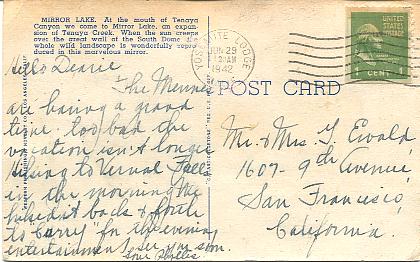 MIRROR LAKE. At the mouth of Tenaya
Canyon we come to Mirror Lake, an expan-
sion of Tenaya Creek. When the sun creeps
over the great wall of the South Dome the
whole wild landscape is wonderfully repro-
duced in this marvelous mirror.
Hello Dearie
The
are having a good
time. too bad the
vacation isn't longer
Hiking to Vernal Fall
in the morning. We
hiked it back & forth
to "Curry" for the evening
entertainment. See you soon.
Love Phyllis
YOSEMITE LODGE
JUN 29
1942
UNITED STATES
POSTAGE
1
CENT
POST CARD
Mr. & Mrs. G Ewald,
1607- 9th Avenue,
San Francisco,
California.